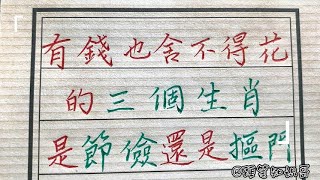 有錢也舍不得花
的三個生肖
是節儉還是摳門